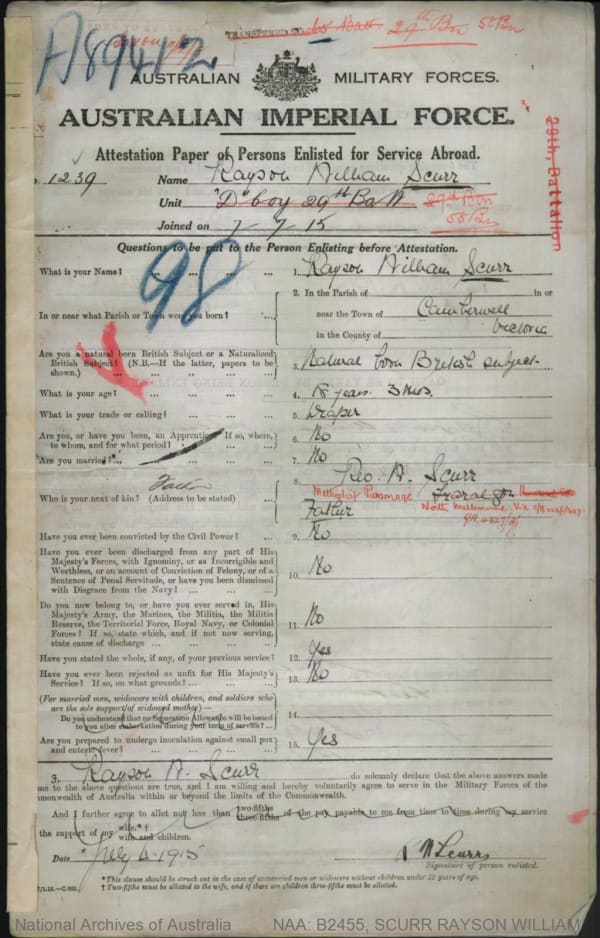 A89412
TRANSFERRED TO 60 Batt 29th Bn 5 Bn
AUSTRALIAN MILITARY FORCES.
AUSTRALIAN IMPERIAL FORCE.
Attestation Paper of Persons Enlisted for Service Abroad.
1239 Name Rayson William Scurr
Unit "D" Coy 29th Batt 29th Btn
Joined on 7 7 15
29th, Battalion
Questions to be put to the Person Enlisting before Attestation.
98
What is your Name? ... 1. Rayson William Scurr
In or near what Parish or Town were you born? ... 2. In the Parish of in or
near the Town of Camberwell
in the County of Victoria
Are you a natural born British Subject or a Naturalized
British Subject? (N.B.—If the latter, papers to be
shown.) 3. Natural born British subject
What is your age? 4. 18 years 3 mos.
What is your trade or calling? 5. Draper
Are you, or have you been, an Apprentice? If so, where,
to whom, and for what period? 6. No
Are you married? 7. No
Who is your next of kin? (Address to be stated) 8. Rev. W. Scurr
Methodist Parsonage Traralgon
Father North Melbourne Vic
Have you ever been convicted by the Civil Power? 9. No
Have you ever been discharged from any part of His
Majesty's Forces, with Ignominy, or as Incorrigible and
Worthless, or on account of Conviction of Felony, or of a
Sentence of Penal Servitude, or have you been dismissed
with Disgrace from the Navy? 10. No
Do you now belong to, or have you ever served in, His
Majesty's Army, the Marines, the Militia, the Militia
Reserve, the Territorial Force, Royal Navy, or Colonial
Forces? If so, state which, and if not now serving,
state cause of discharge 11. No
Have you stated the whole, if any, of your previous service? 12. Yes
Have you ever been rejected as unfit for His Majesty's
Service? If so, on what grounds? 13. No
(For married men, widowers with children, and soldiers who
are the sole support of widowed mother)—
Do you understand that no Separation Allowance will be issued
to you after embarkation during your term of service? 14.
Are you prepared to undergo inoculation against small pox
and enteric fever? 15. Yes
3. Rayson W. Scurr do solemnly declare that the above answers made
me to the above questions are true, and I am willing and hereby voluntarily agree to serve in the Military Forces of the
mmonwealth of Australia within or beyond the limits of the Commonwealth.
And I further agree to allot not less than two-fifths three-fifths of the pay payable to me from time to time during my service
the support of my wife.*† wife and children.
Date July 6 1915 R W Scurr
Signature of person enlisted.
*This clause should be struck out in the case of unmarried men or widowers without children under 18 years of age.
† Two-fifths must be allotted to the wife, and if there are children three-fifths must be allotted.
National Archives of Australia NAA: B2455, SCURR RAYSON WILLIAM